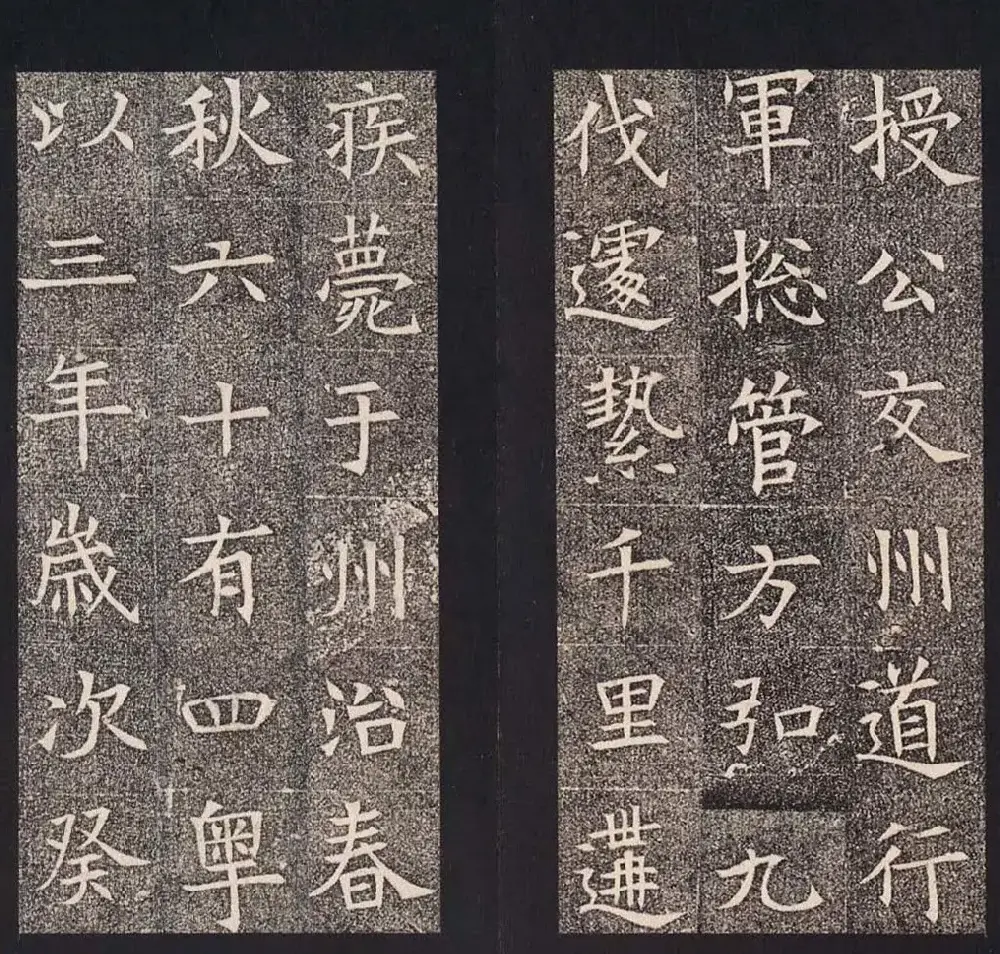 授公文州道行
軍捴管方弘九
伐遽縶千里遘
疾薨于州治春
秋六十有四粤
以三年歳次癸